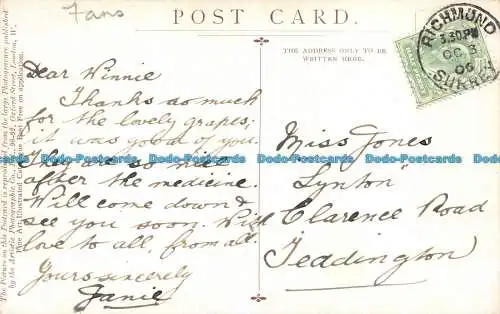 Fans
POST CARD.
THE ADDRESS ONLY TO BE
WRITTEN HERE.
RICHMOND
5.30 PM
OC 3
06
SURREY
Dear Winnie
Thanks so much
for the lovely grapes;
it was good of you.
They are so nice
after the medicine.
Will come down &
see you soon. With
love to all, from all.
Yours sincerely
Janie
Miss Jones
"Lynton"
Clarence Road
Teddington
The Picture on this Postcard is reproduced from the large Photogravure published
by the Artistic Photographic Co., Oxford Street, London, W.
Fine Art Illustrated Catalogue Post Free on application.
Dodo-Postcards Dodo-Postcards Dodo-Postcards Dodo-Postcards Dodo-Postcards